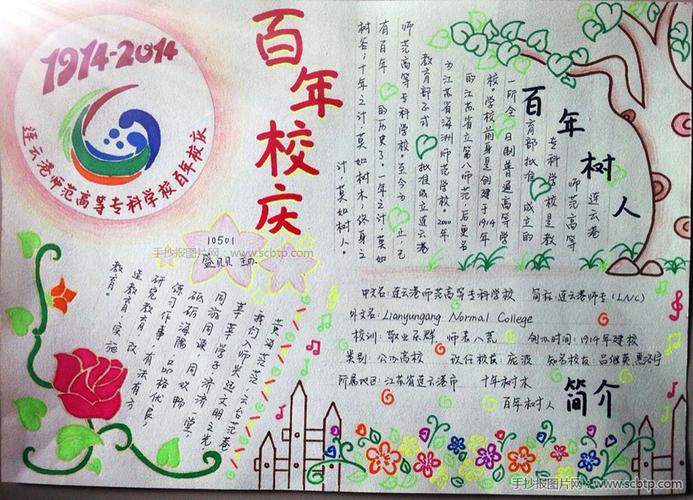 1914-2014
连云港师范高等专科学校百年校庆
百年校庆
手抄报图片网 www.scbtp.com
10501
盛贝
百年树人
连云港
师范高等
专科学校是教
育部批准成立的
一所全日制普通高等学
校。学校前身是创建于1914年
的江苏省立第八师范,后更名
为江苏省海州师范学校。2000年
教育部正式批准成立连云港
师范高等专科学校。至今为止,已
有百年的历史了。一年之计,莫如
树谷;十年之计,莫如树木;终身之
计,莫如树人。
黄海茫茫,云台苍苍
我们大师,兴起文明之光,
莘莘学子济济一堂,
同游同泳
砥砺
练习作事,品格优良,
研究教育,有法有方,
速教育,实改
教育,实施
中文名:连云港师范高等专科学校 简称:连云港师专(LNC)
外文名:Lianyungang Normal College
校训:敬业乐群 师者人范 创办时间:1914年建校
类别:公办高校 议任校长:庞波 知名校友:
所属地区:江苏省连云港市 十年树木
百年树人
简介
手抄报图片网 www.scbtp.com